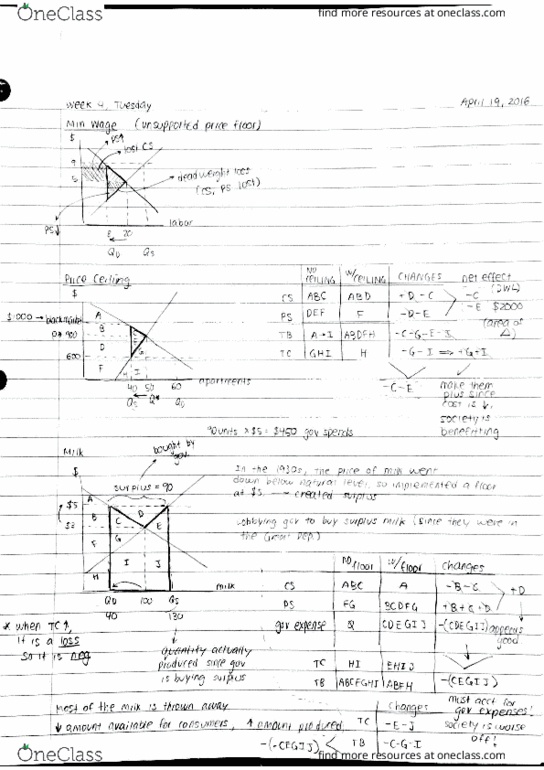 OneClass
find more resources at oneclass.com
find more resources at oneclass.com
April 19, 2016
Week 4, Tuesday
Min Wage (unsupported price floor)
$
PS↑
lost CS
9
5
dead weight loss
(CS, PS lost)
PS↓
8 20
labor
QD QS
Price Ceiling
NO CEILING W/CEILING CHANGES net effect
CS ABC ABD +D-C -C (DWL)
PS DEF F -D-E -E $2000
(area of △)
TB A→I ABDFH -C-G-E-I
TC GHI H -G-I ⟹ +G+I
-C-E
make them
plus since
cost is ↓,
society is
benefitting
$
$1000 → black market
A
B
C
D
E
600
F
G
H I
40 50 60 apartments
QS Q* QD
90 units x $5 = $450 gov spends
Milk
bought by gov.
$
surplus = 90
$5
$2
A
B C D E
F G
I J
H
milk
QD 100 QS
40 130
In the 1930s, the price of milk went
down below natural level, so implemented a floor
at $5. → created surplus
Lobbying gov to buy surplus milk (since they were in
the Great Dep.)
no floor w/floor changes
CS ABC A -B-C
+D
PS FG BCDFG +B+C+D
gov expense Q CDEGIJ -(CDEGIJ) appears good
TC HI EHIJ
-(CEGIJ)
TB ABCFGHI ABFH
must acct for
gov expenses!
society is worse
off!
* when TC ↑
it is a loss
so it is neg
quantity actually
produced since gov
is buying surplus
Most of the milk is thrown away
↓ amount available for consumers, ↑ amount produced
Changes
TC -E-J
-(-CEGIJ) TB -C-G-I
OneClass
find more resources at oneclass.com